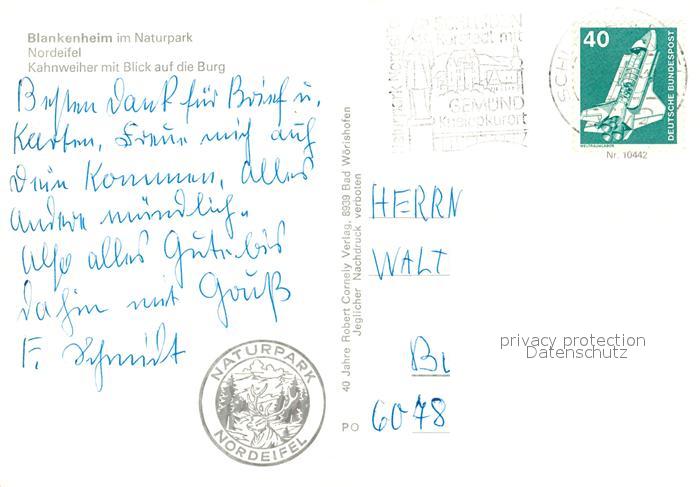 Blankenheim im Naturpark
Nordeifel
Kahnweiher mit Blick auf die Burg
Besten Dank für Brief u.
Karten. Freue mich auf
Dein Kommen, alles
andere mündlich.
Also alles Gute bis
dahin mit Gruß
F. Schmidt
NATURPARK
NORDEIFEL
40 Jahre Robert Cornely Verlag, 8939 Bad Wörishofen
Jeglicher Nachdruck verboten
PO
SCHLEIDEN
Kurstadt mit
GEMÜND
Kneippkurort
SCHL
40
DEUTSCHE BUNDESPOST
WELTRAUMLABOR
Nr. 10442
HERRN
WALT
privacy protection
Datenschutz
6078